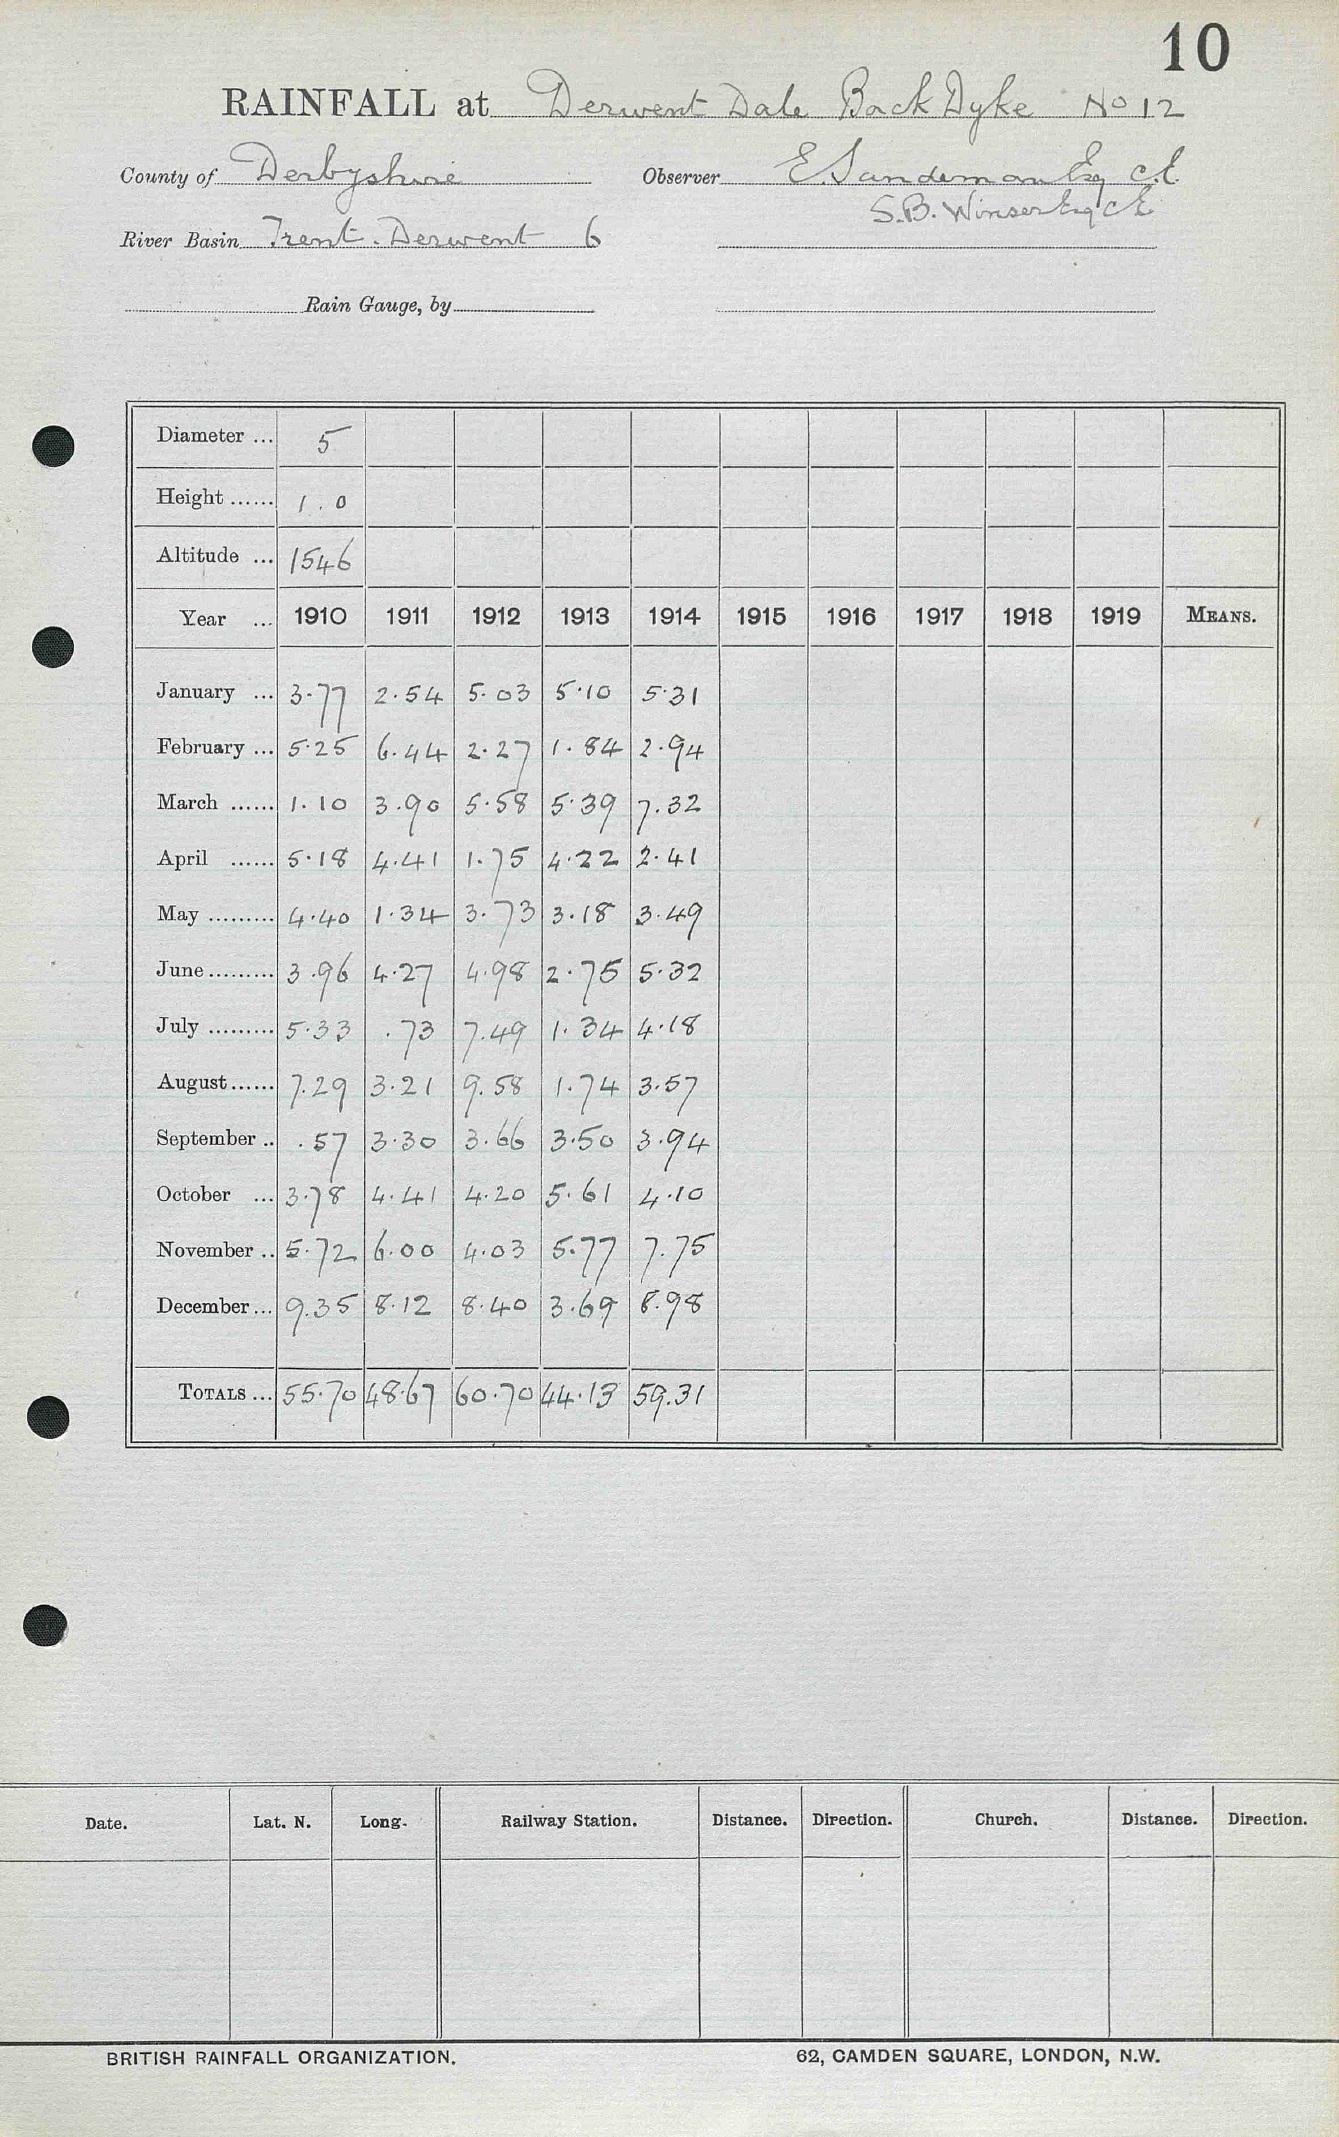 10
RAINFALL at Derwent Dale Back Dyke No 12
County of Derbyshire Observer E. Sandeman Esq C.E.
S.B. Winser Esq CE
River Basin Trent. Derwent 6
Rain Gauge, by
Diameter ... 5
Height ...... 1.0
Altitude ... 1546
Year ... 1910 1911 1912 1913 1914 1915 1916 1917 1918 1919 MEANS.
January ... 3.77 2.54 5.03 5.10 5.31
February ... 5.25 6.44 2.27 1.84 2.94
March ...... 1.10 3.90 5.58 5.39 7.32
April ...... 5.18 4.41 1.75 4.22 2.41
May ......... 4.40 1.34 3.73 3.18 3.49
June ......... 3.96 4.27 4.98 2.75 5.32
July ......... 5.33 .73 7.49 1.34 4.18
August ...... 7.29 3.21 9.58 1.74 3.57
September .. .57 3.30 3.66 3.50 3.94
October ... 3.78 4.41 4.20 5.61 4.10
November .. 5.72 6.00 4.03 5.77 7.75
December ... 9.35 8.12 8.40 3.69 8.98
TOTALS ... 55.70 48.67 60.70 44.13 59.31
Date. Lat. N. Long. Railway Station. Distance. Direction. Church. Distance. Direction.
BRITISH RAINFALL ORGANIZATION. 62, CAMDEN SQUARE, LONDON, N.W.